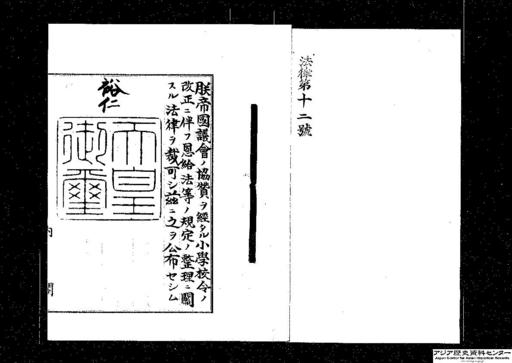 法律第十二號
朕帝國議會ノ協賛ヲ經タル小學校令ノ
改正ニ伴フ恩給法等ノ規定ノ整理ニ關
スル法律ヲ裁可シ茲ニ之ヲ公布セシム
裕仁
天皇
御璽
内閣
アジア歴史資料センター
Japan Center for Asian Historical Records